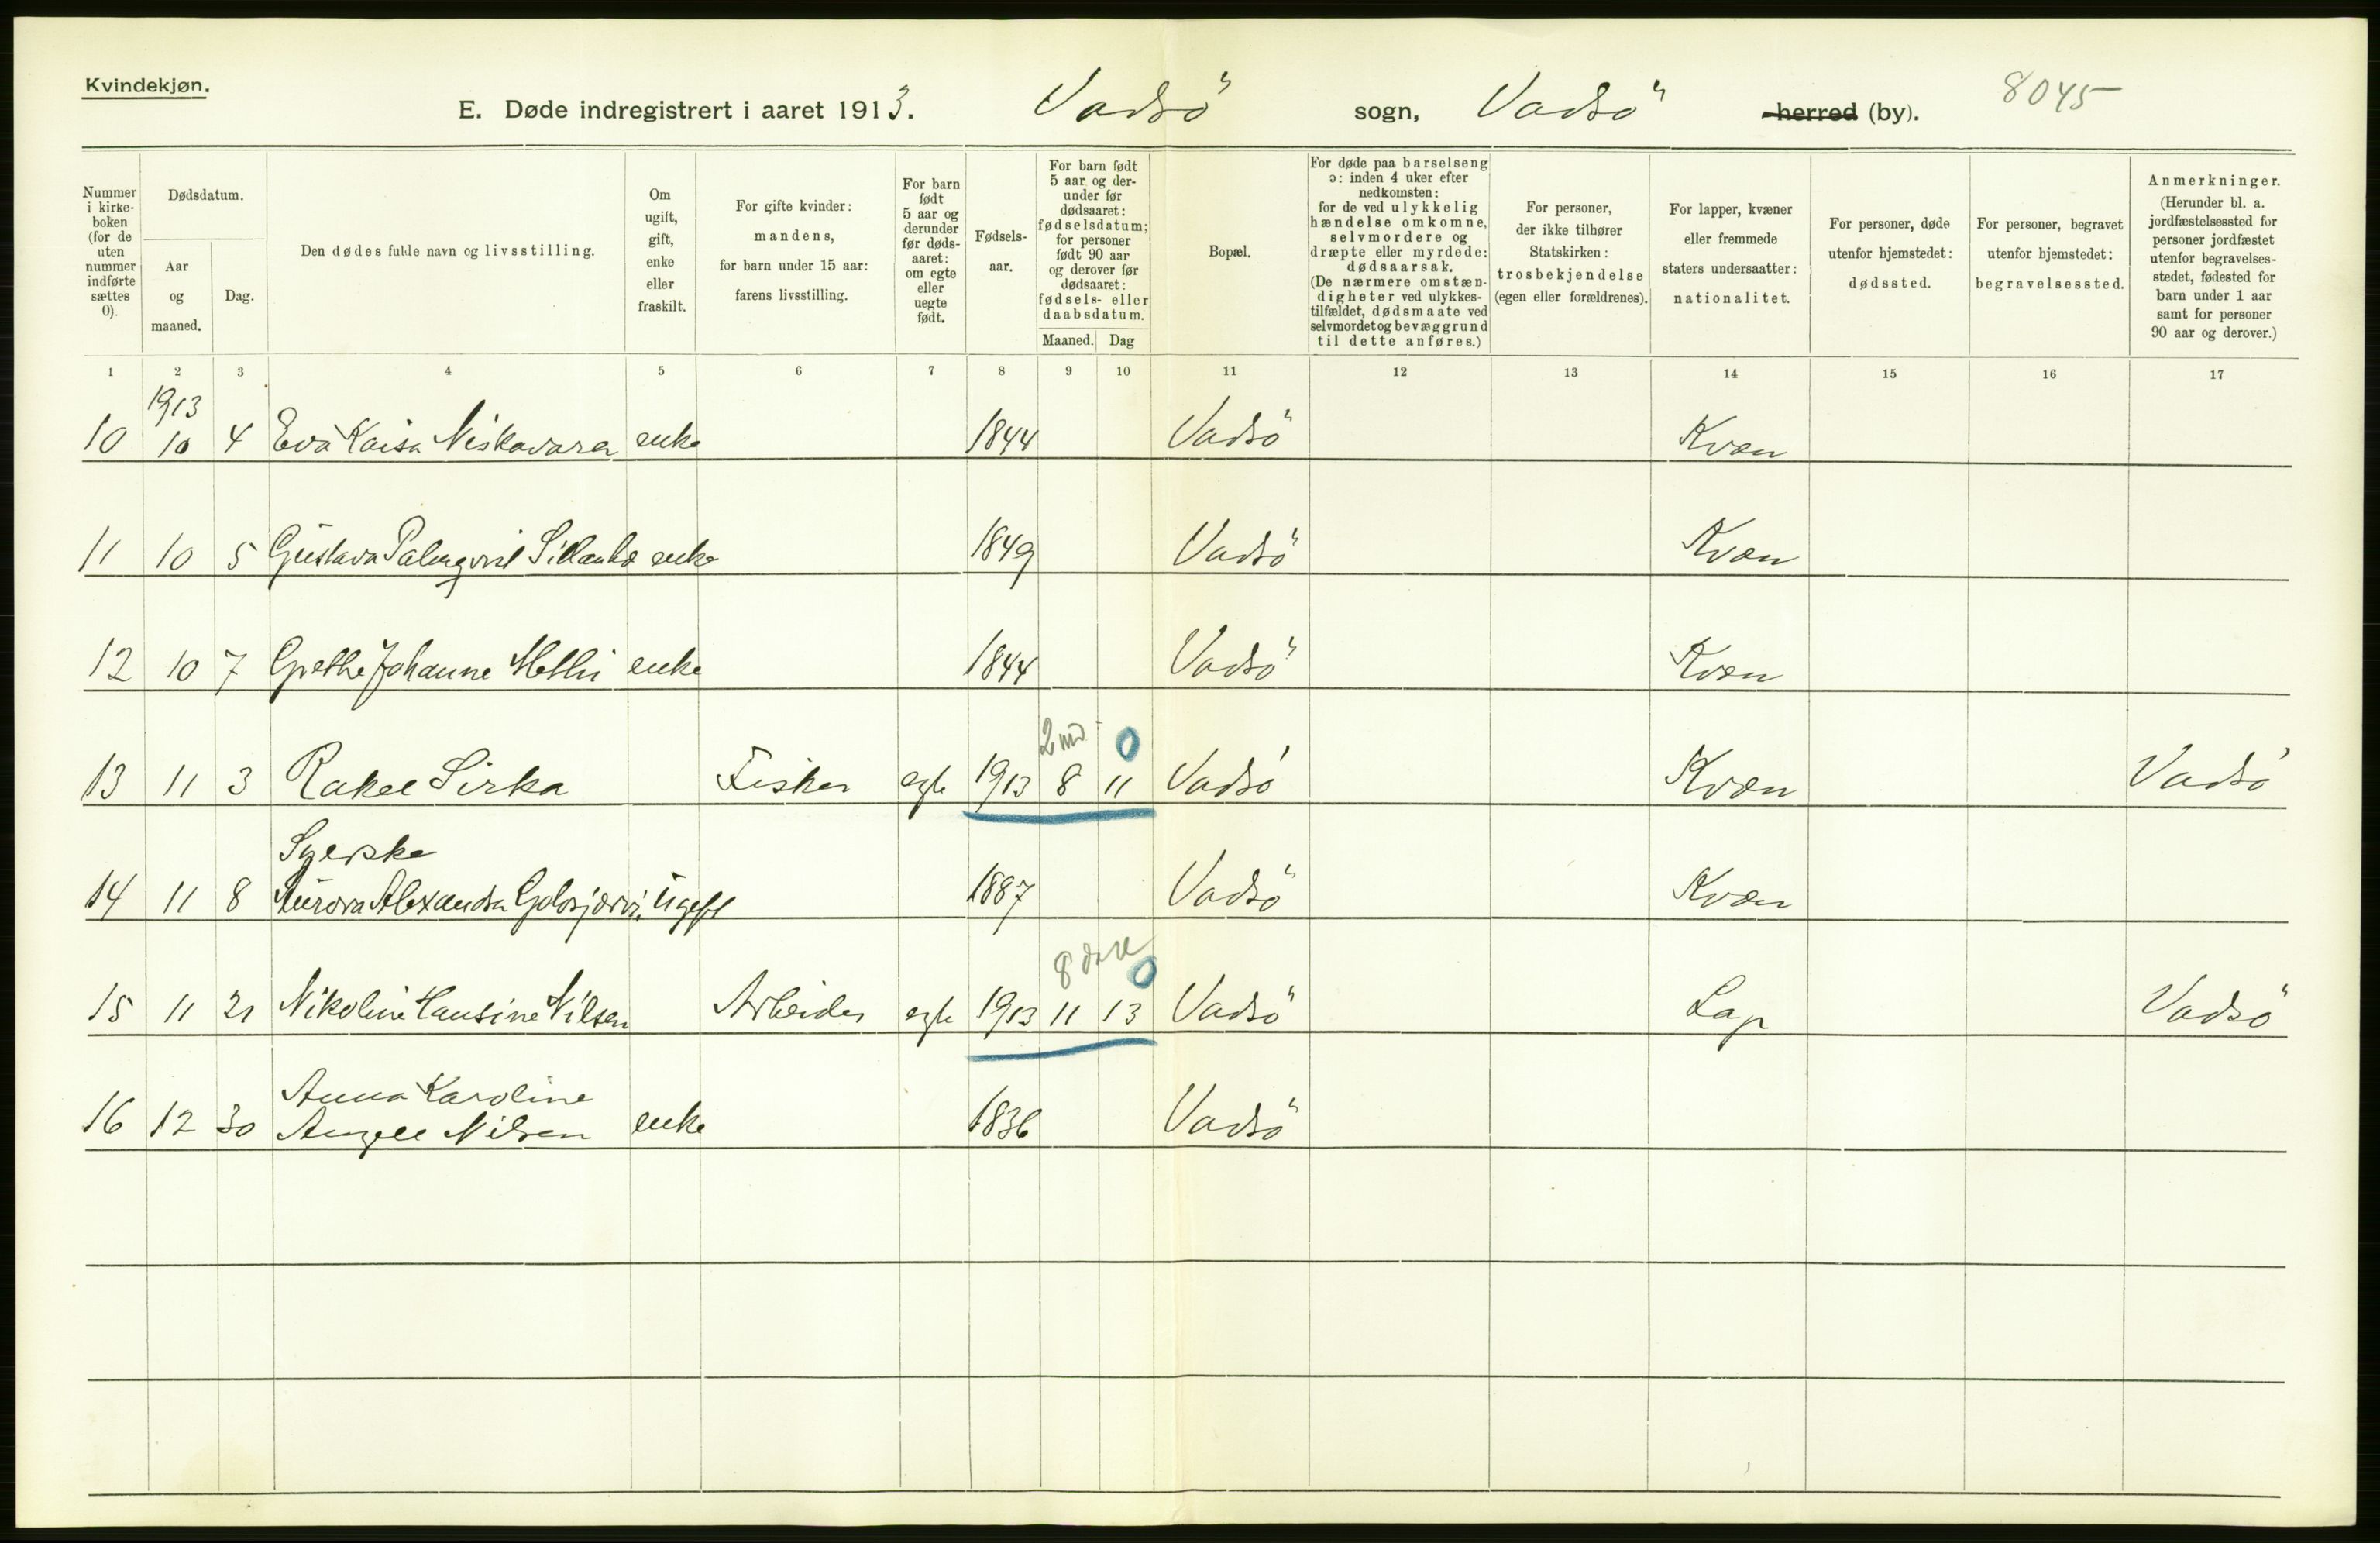 Kvindekjøn.
E. Døde indregistrert i aaret 1913. Vadsö sogn, Vadsö herred (by). 8045
Nummer i kirke-boken (for de uten nummer indførte sættes 0).
Dødsdatum.
Aar og maaned.
Dag.
Den dødes fulde navn og livsstilling.
Om ugift, gift, enke eller fraskilt.
For gifte kvinder: mandens, for barn under 15 aar: farens livsstilling.
For barn født 5 aar og derunder før døds-aaret: om egte eller uegte født.
Fødsels-aar.
For barn født 5 aar og der-under før dødsaaret: fødselsdatum; for personer født 90 aar og derover før dødsaaret: fødsels- eller daabsdatum.
Maaned. Dag
Bopæl.
For døde paa barselseng ɔ: inden 4 uker efter nedkomsten: for de ved ulykkelig hændelse omkomne, selvmordere og dræpte eller myrdede: dødsaarsak. (De nærmere omstæn-digheter ved ulykkes-tilfældet, dødsmaate ved selvmordet og bevæggrund til dette anføres.)
For personer, der ikke tilhører Statskirken: trosbekjendelse (egen eller forældrenes).
For lapper, kvæner eller fremmede staters undersaatter: nationalitet.
For personer, døde utenfor hjemstedet: dødssted.
For personer, begravet utenfor hjemstedet: begravelsessted.
Anmerkninger. (Herunder bl. a. jordfæstelsessted for personer jordfæstet utenfor begravelses-stedet, fødested for barn under 1 aar samt for personer 90 aar og derover.)
1 2 3 4 5 6 7 8 9 10 11 12 13 14 15 16 17
1913
10 10 4 Eva Kaisa Niskavara enke 1844 Vadsö Kvæn
11 10 5 Gustava Palmqvist enke 1849 Vadsö Kvæn
12 10 7 Grethe Johanne enke 1844 Vadsö Kvæn
2 md 0
13 11 3 Rakel Sirka Fisker egte 1913 8 11 Vadsö Kvæn Vadsö
Syerske
14 11 8 Aurora Alexandra ugift 1887 Vadsö Kvæn
8 0
15 11 21 Nikoline Hansine Nilsen Arbeider egte 1913 11 13 Vadsö Lap Vadsö
Anna Karoline
16 12 30 Angell Nilsen enke 1836 Vadsö